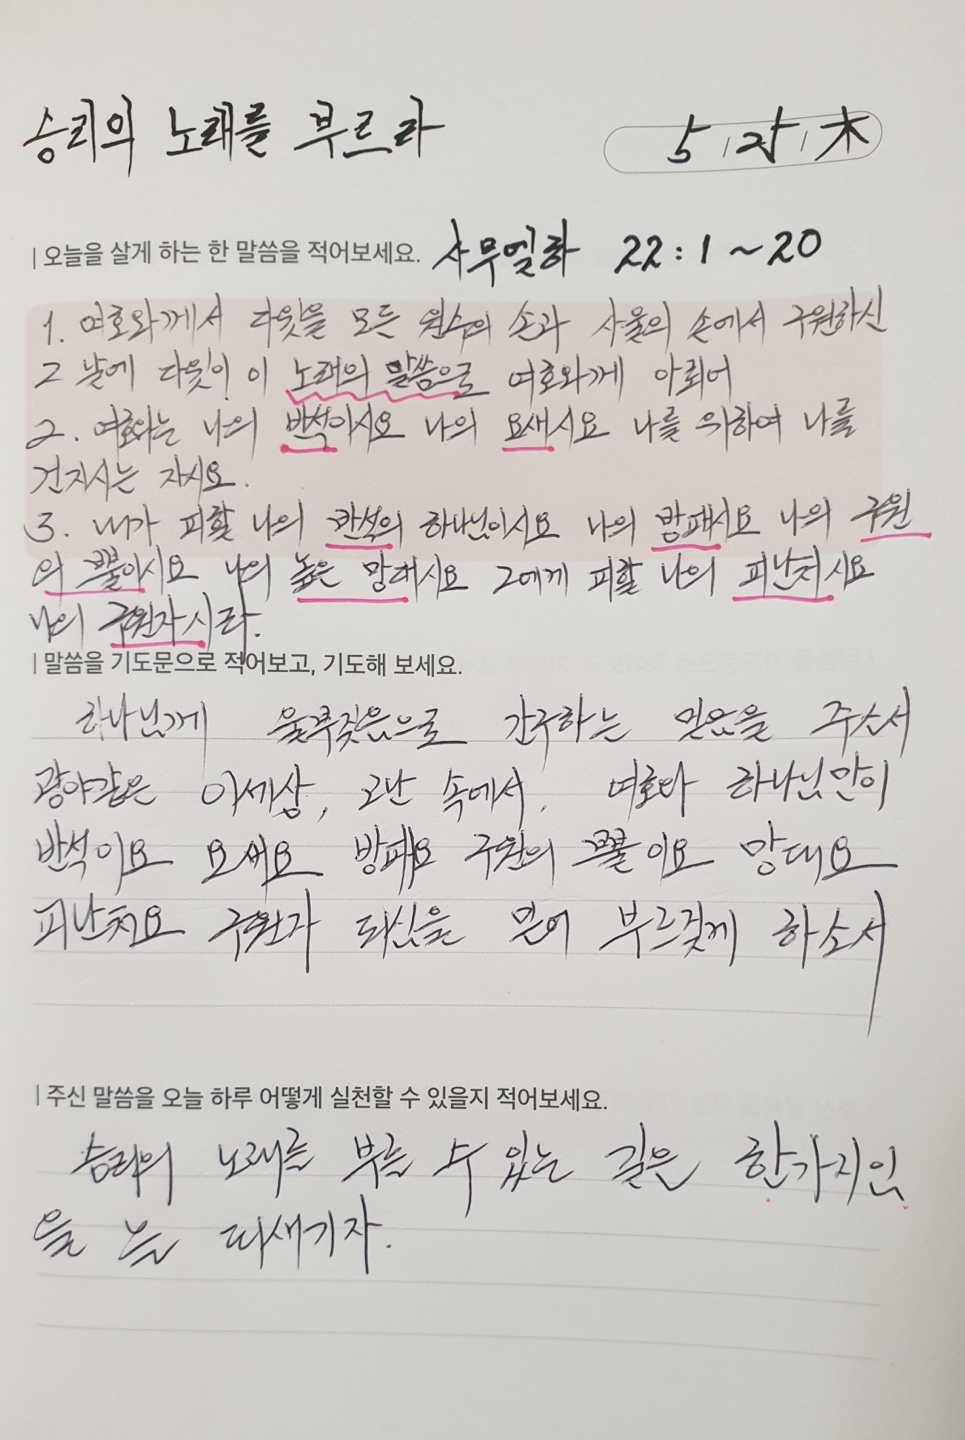 승리의 노래를 부르라
5 / 25 / 木
| 오늘을 살게 하는 한 말씀을 적어보세요. 사무엘하 22:1~20
1. 여호와께서 다윗을 모든 원수의 손과 사울의 손에서 구원하신
그 날에 다윗이 이 노래의 말씀으로 여호와께 아뢰어
2. 여호와는 나의 반석이시요 나의 요새시요 나를 위하여 나를
건지시는 자시요.
3. 내가 피할 나의 반석의 하나님이시요 나의 방패시요 나의 구원
의 뿔이시요 나의 높은 망대시요 그에게 피할 나의 피난처시요
나의 구원자시라.
| 말씀을 기도문으로 적어보고, 기도해 보세요.
하나님께 울부짖음으로 간구하는 믿음을 주소서
광야같은 이세상, 고난 속에서, 여호와 하나님만이
반석이요 요새요 방패요 구원의 뿔이요 망대요
피난처요 구원자 되심을 믿어 부르짖게 하소서
| 주신 말씀을 오늘 하루 어떻게 실천할 수 있을지 적어보세요.
승리의 노래를 부를 수 있는 길은 한가지인
을 늘 되새기자.